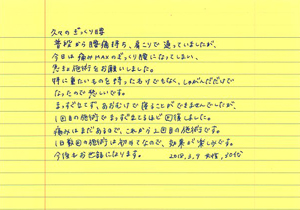 久々のぎっくり腰
普段から腰痛持ち、肩こりで通っていましたが、
今日は痛みMAXのぎっくり腰になってしまい、
急きょ施術をお願いしました。
特に重たいものを持ったわけでもなく、しゃがんだだけで
なったので悲しいです。
まっすぐ立てず、あおむけで寝ることができませんでしたが、
1回目の施術でまっすぐ立てるほど回復しました。
痛みはまだあるので、これから2回目の施術です。
1日数回の施術は初めてなので、効果が楽しみです。
今後もお世話になります。 2018.3.9 女性、30代